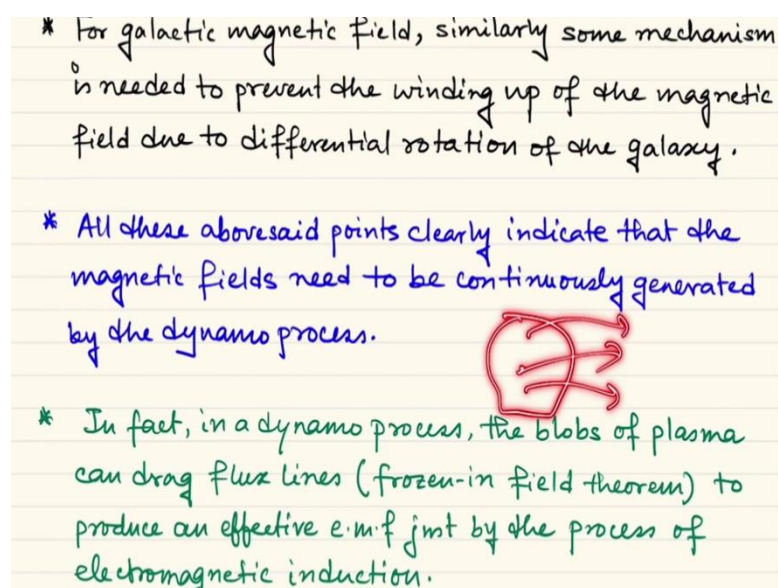 * For galactic magnetic field, similarly some mechanism
is needed to prevent the winding up of the magnetic
field due to differential rotation of the galaxy.
* All these abovesaid points clearly indicate that the
magnetic fields need to be continuously generated
by the dynamo process.
* In fact, in a dynamo process, the blobs of plasma
can drag flux lines (frozen-in field theorem) to
produce an effective e.m.f just by the process of
electromagnetic induction.